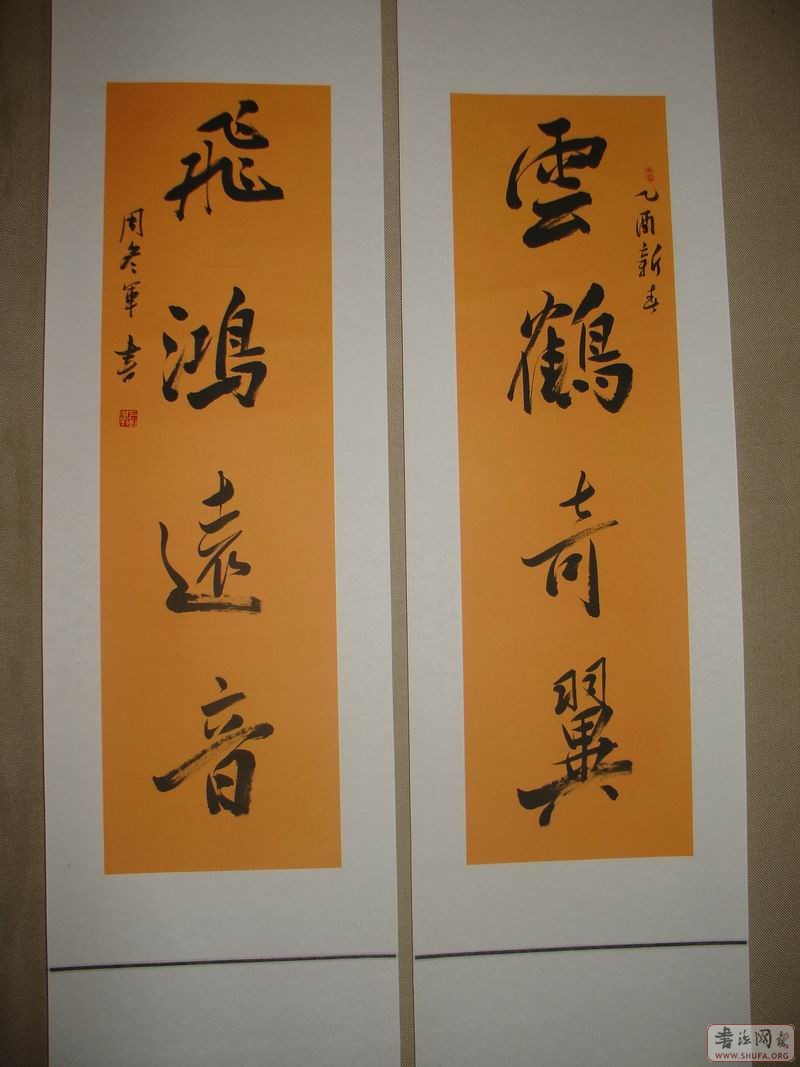 乙酉新春
雲鶴奇翼
飛鴻遠音
周冬軍書
书法网
WWW.SHUFA.ORG